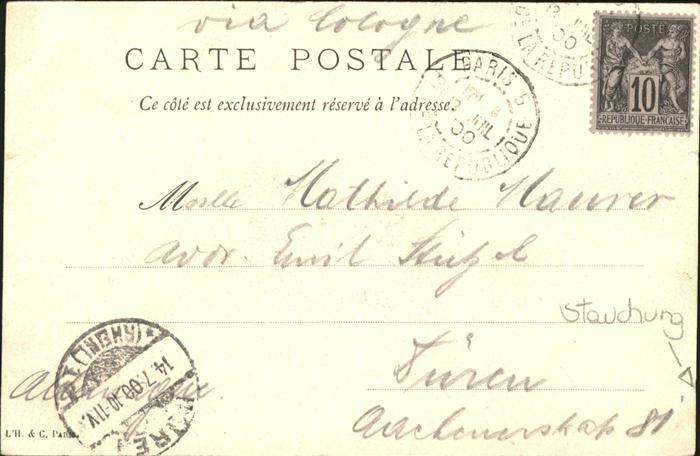 via Cologne
CARTE POSTALE
Ce côté est exclusivement réservé à l'adresse.
POSTE
10
REPUBLIQUE FRANÇAISE
PARIS 5
JUIL
00
LA REPUBLIQUE
LA REPU
00
Mselle Mathilde Maurer
Adr. Emil
Stauchung
Düren
Aachenerstr 81.
(RHEINL)
14.7.00.10-11V.
L'H. & C. PARIS.